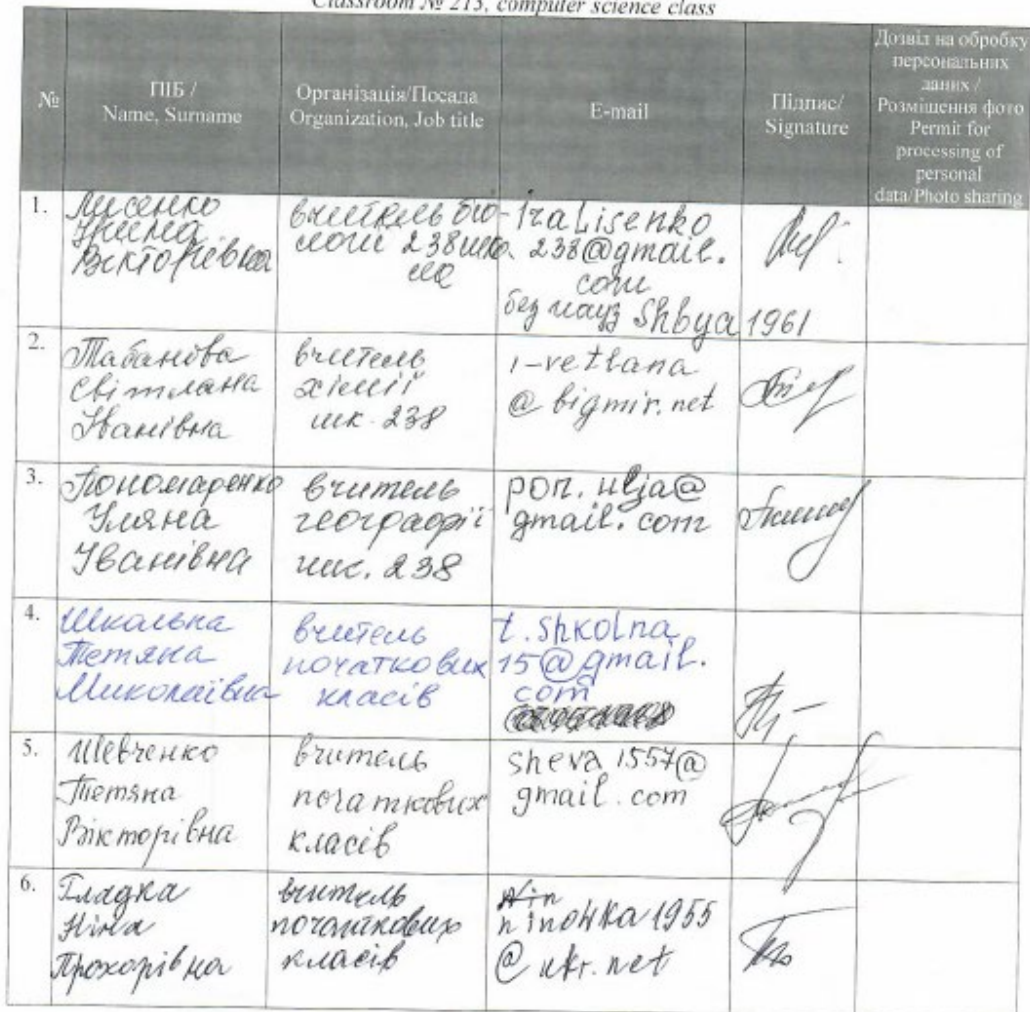 Classroom № 213, computer science class
№
ПІБ /
Name, Surname
Організація/Посада
Organization, Job title
E-mail
Підпис/
Signature
Дозвіл на обробку
персональних
даних /
Розміщення фото
Permit for
processing of
personal
data/Photo sharing
1.
Лисенко
Ірина
Вікторівна
вчитель біо-
логії 238 шко
ла
IraLisenko
238@gmail.
com
без пауз Shbya1961
2.
Табанова
Світлана
Іванівна
вчитель
хімії
шк. 238
i-vetlana
@bigmir.net
3.
Пономаренко
Уляна
Іванівна
вчитель
географії
шк. 238
pon.ulja@
gmail.com
4.
Школьна
Тетяна
Миколаївна
вчитель
початкових
класів
t.shkolna
15@gmail.
com
5.
Шевченко
Тетяна
Вікторівна
вчитель
початкових
класів
sheva1557@
gmail.com
6.
Гладка
Ніна
Прохорівна
вчитель
початкових
класів
Nin
1955
@ukr.net